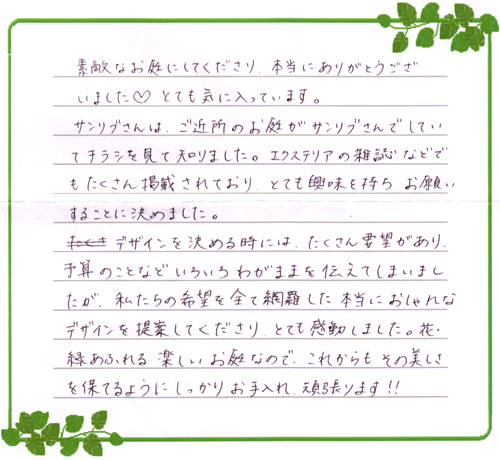 素敵なお庭にしてくださり、本当にありがとうござ
いました♡ とても気に入っています。
サンリブさんは、ご近所のお庭がサンリブさんでしてい
てチラシを見て知りました。エクステリアの雑誌などで
もたくさん掲載されており、とても興味を持ち、お願い
することに決めました。
デザインを決める時には、たくさん要望があり、
予算のことなどいろいろわがままを伝えてしまいまし
たが、私たちの希望を全て網羅した本当におしゃれな
デザインを提案してくださり、とても感動しました。花・
緑あふれる楽しいお庭なので、これからもその美しさ
を保てるようにしっかりお手入れ、頑張ります!!